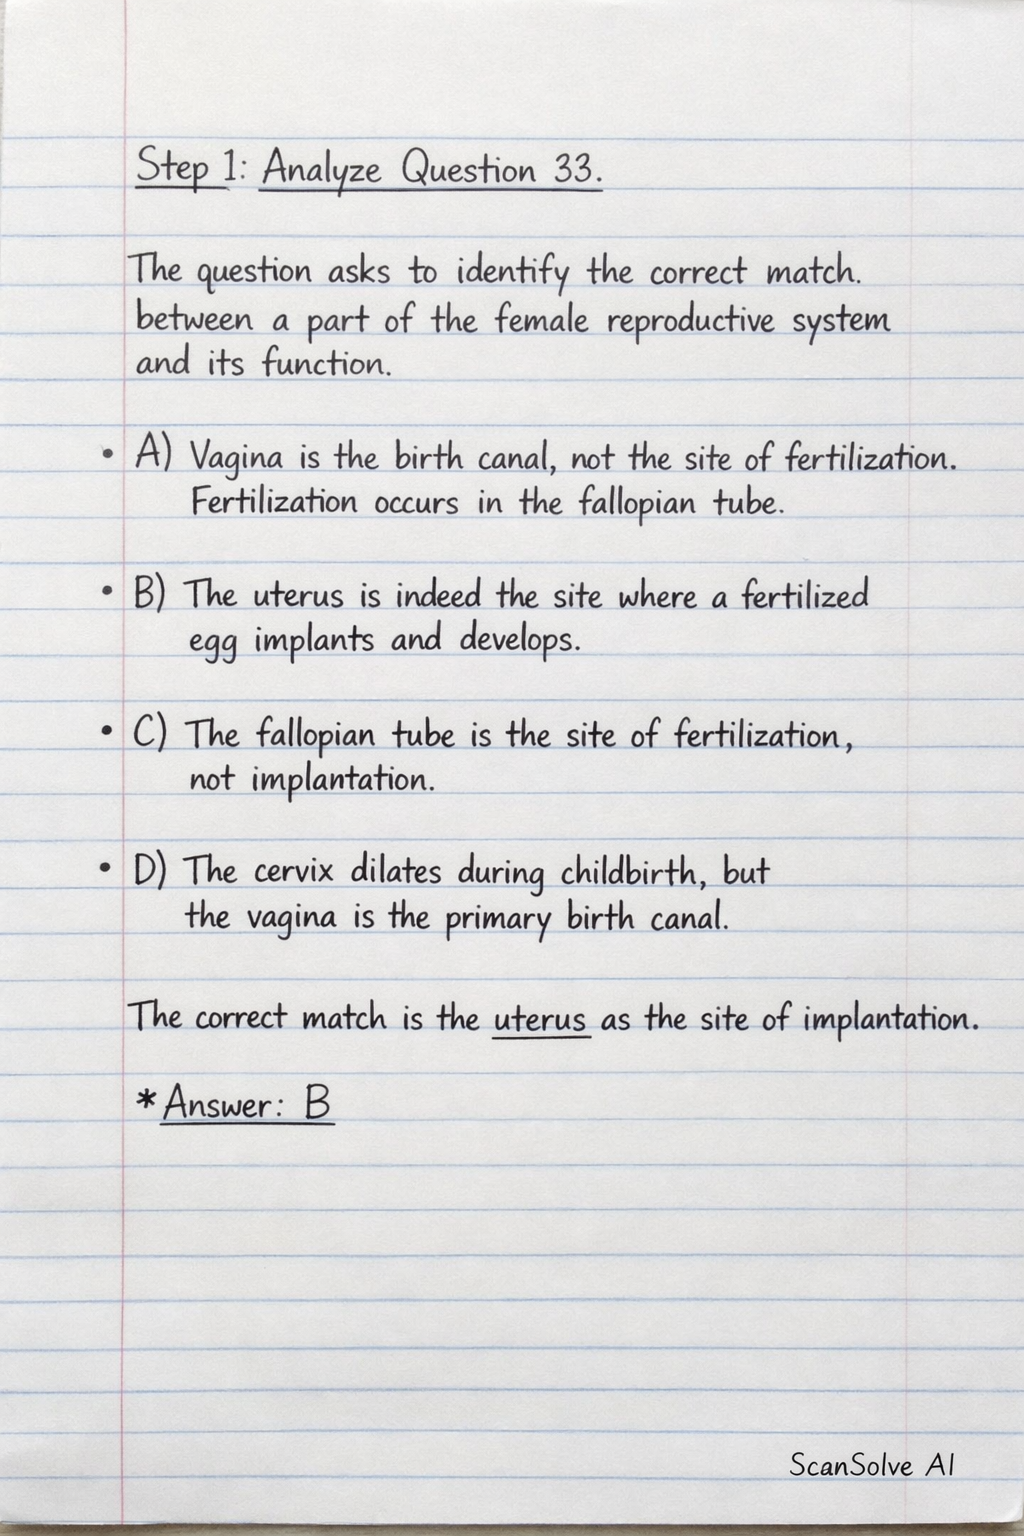 Step 1: Analyze Question 33.
The question asks to identify the correct match.
between a part of the female reproductive system
and its function.
• A) Vagina is the birth canal, not the site of fertilization.
Fertilization occurs in the fallopian tube.
• B) The uterus is indeed the site where a fertilized
egg implants and develops.
• C) The fallopian tube is the site of fertilization,
not implantation.
• D) The cervix dilates during childbirth, but
the vagina is the primary birth canal.
The correct match is the uterus as the site of implantation.
* Answer: B
ScanSolve AI